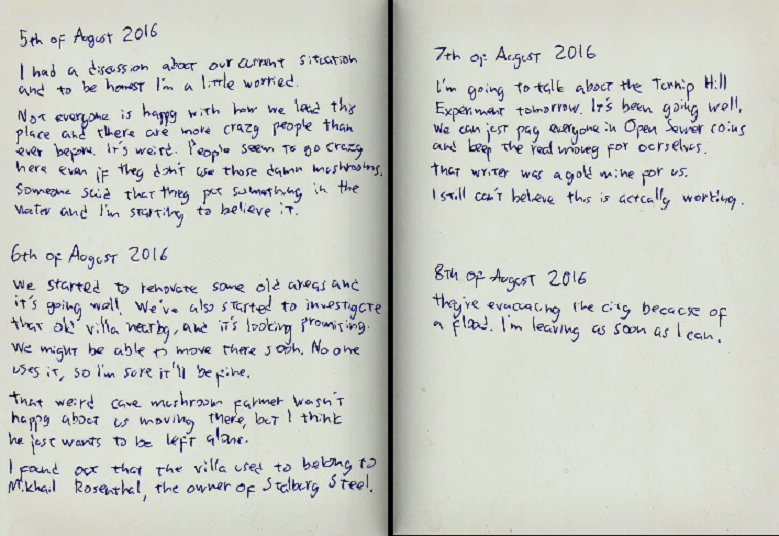 5th of August 2016
I had a discussion about our current situation
and to be honest I'm a little worried.
Not everyone is happy with how we lead this
place and there are more crazy people than
ever before. It's weird. People seem to go crazy
here even if they don't use those damn mushrooms.
Someone said that they put something in the
water and I'm starting to believe it.
6th of August 2016
We started to renovate some old areas and
it's going well. We've also started to investigate
that old villa nearby, and it's looking promising.
We might be able to move there soon. No one
uses it, so I'm sure it'll be fine.
That weird cave mushroom farmer wasn't
happy about us moving there, but I think
he just wants to be left alone.
I found out that the villa used to belong to
Mikhail Rosenthal, the owner of Stalburg Steel.
7th of August 2016
I'm going to talk about the Turnip Hill
Experiment tomorrow. It's been going well.
We can just pay everyone in Open Sewer coins
and keep the real money for ourselves.
That writer was a gold mine for us.
I still can't believe this is actually working.
8th of August 2016
They're evacuating the city because of
a flood. I'm leaving as soon as I can.